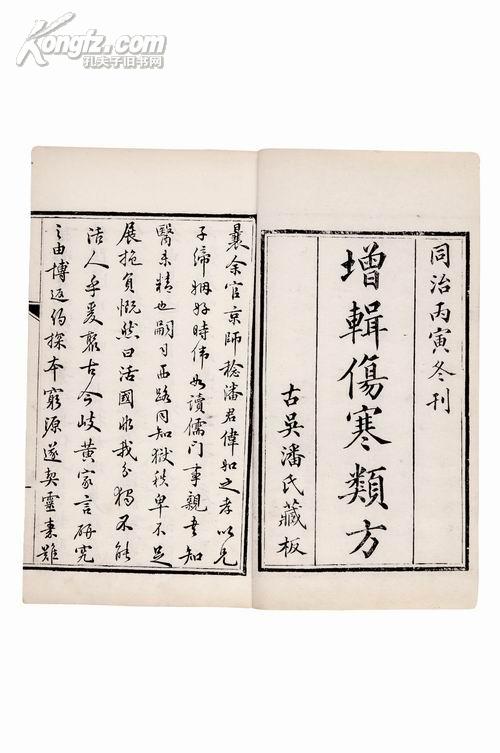 Kongfz.com
孔夫子旧书网
同治丙寅冬刊
增輯傷寒類方
古吳潘氏藏板
曩余官京師稔潘君偉如之孝以兄
子締姻好時偉如讀儒門事親書知
醫未精也嗣司西路同知獄秩卑不足
展抱負慨然曰活國非我分獨不能
活人乎爰聚古今岐黃家言研究
之由博返約探本窮源遂契靈素難